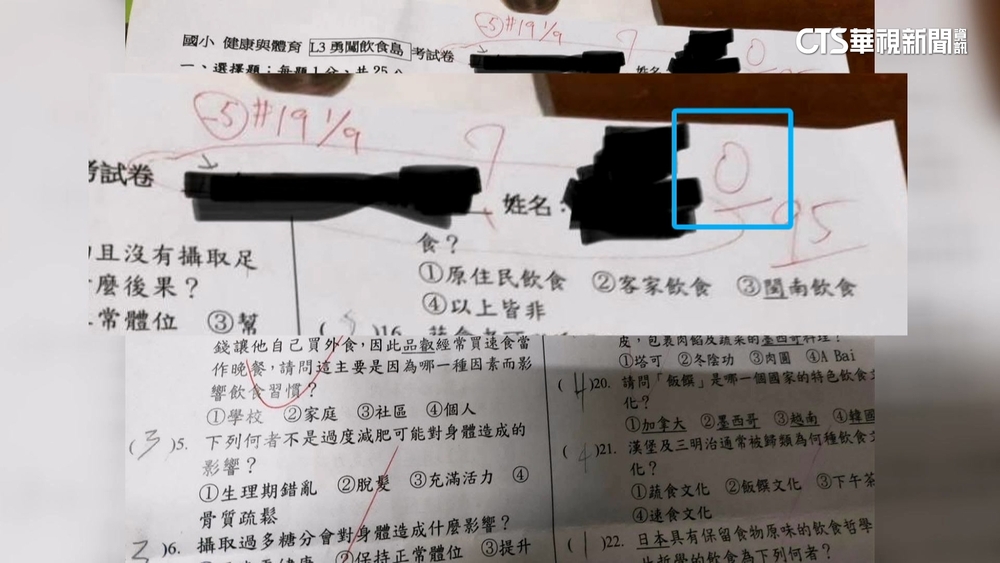 CTS華視新聞資訊
-5 #19 1/9
7
0
國小 健康與體育 L3勇闖飲食島 考試卷
姓名
一、選擇題:每題1分、共25分
-5 #19 1/9
7
0
5
95
考試卷
姓名:
且沒有攝取足
麼後果?
常體位 ③幫
食?
①原住民飲食 ②客家飲食 ③閩南飲食
④以上皆非
)16.
錢讓他自己買外食,因此品叡經常買速食當
作晚餐,請問這主要是因為哪一種因素而影
響飲食習慣?
①學校 ②家庭 ③社區 ④個人
( 3 )5. 下列何者不是過度減肥可能對身體造成的
影響?
①生理期錯亂 ②脫髮 ③充滿活力 ④
骨質疏鬆
3 )6. 攝取過多糖分會對身體造成什麼影響?
②保持正常體位 ③提升
皮,包裹肉餡及蔬菜的墨西哥料理?
①塔可 ②冬陰功 ③肉圓 ④A Bai
( 4 )20. 請問「飯饌」是哪一個國家的特色飲食文
化?
①加拿大 ②墨西哥 ③越南 ④韓國
( 4 )21. 漢堡及三明治通常被歸類為何種飲食文
化?
①蔬食文化 ②飯饌文化 ③下午茶
④速食文化
( 1 )22. 日本具有保留食物原味的飲食哲學
此哲學的飲食為下列何者?